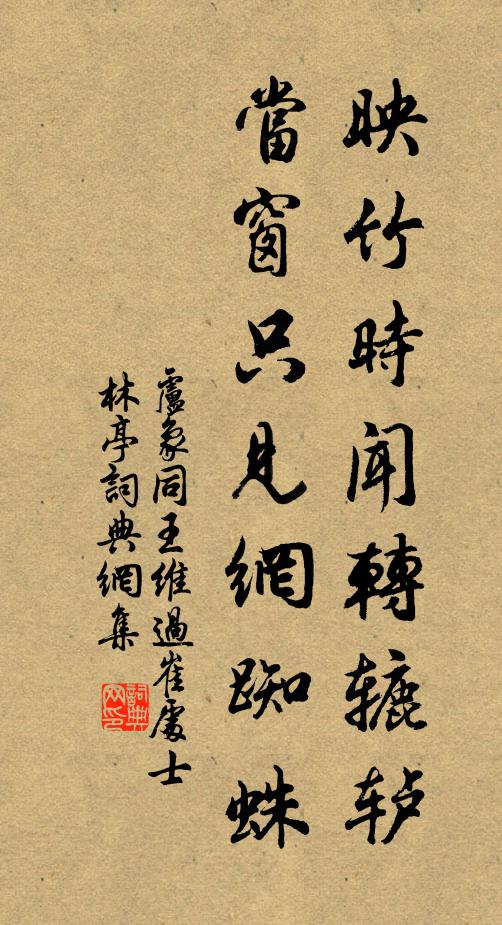 映竹時聞轉辘轳
當窗只見網踟蛛
盧象同王維過崔處士
林亭詞典網集
詞典
网印